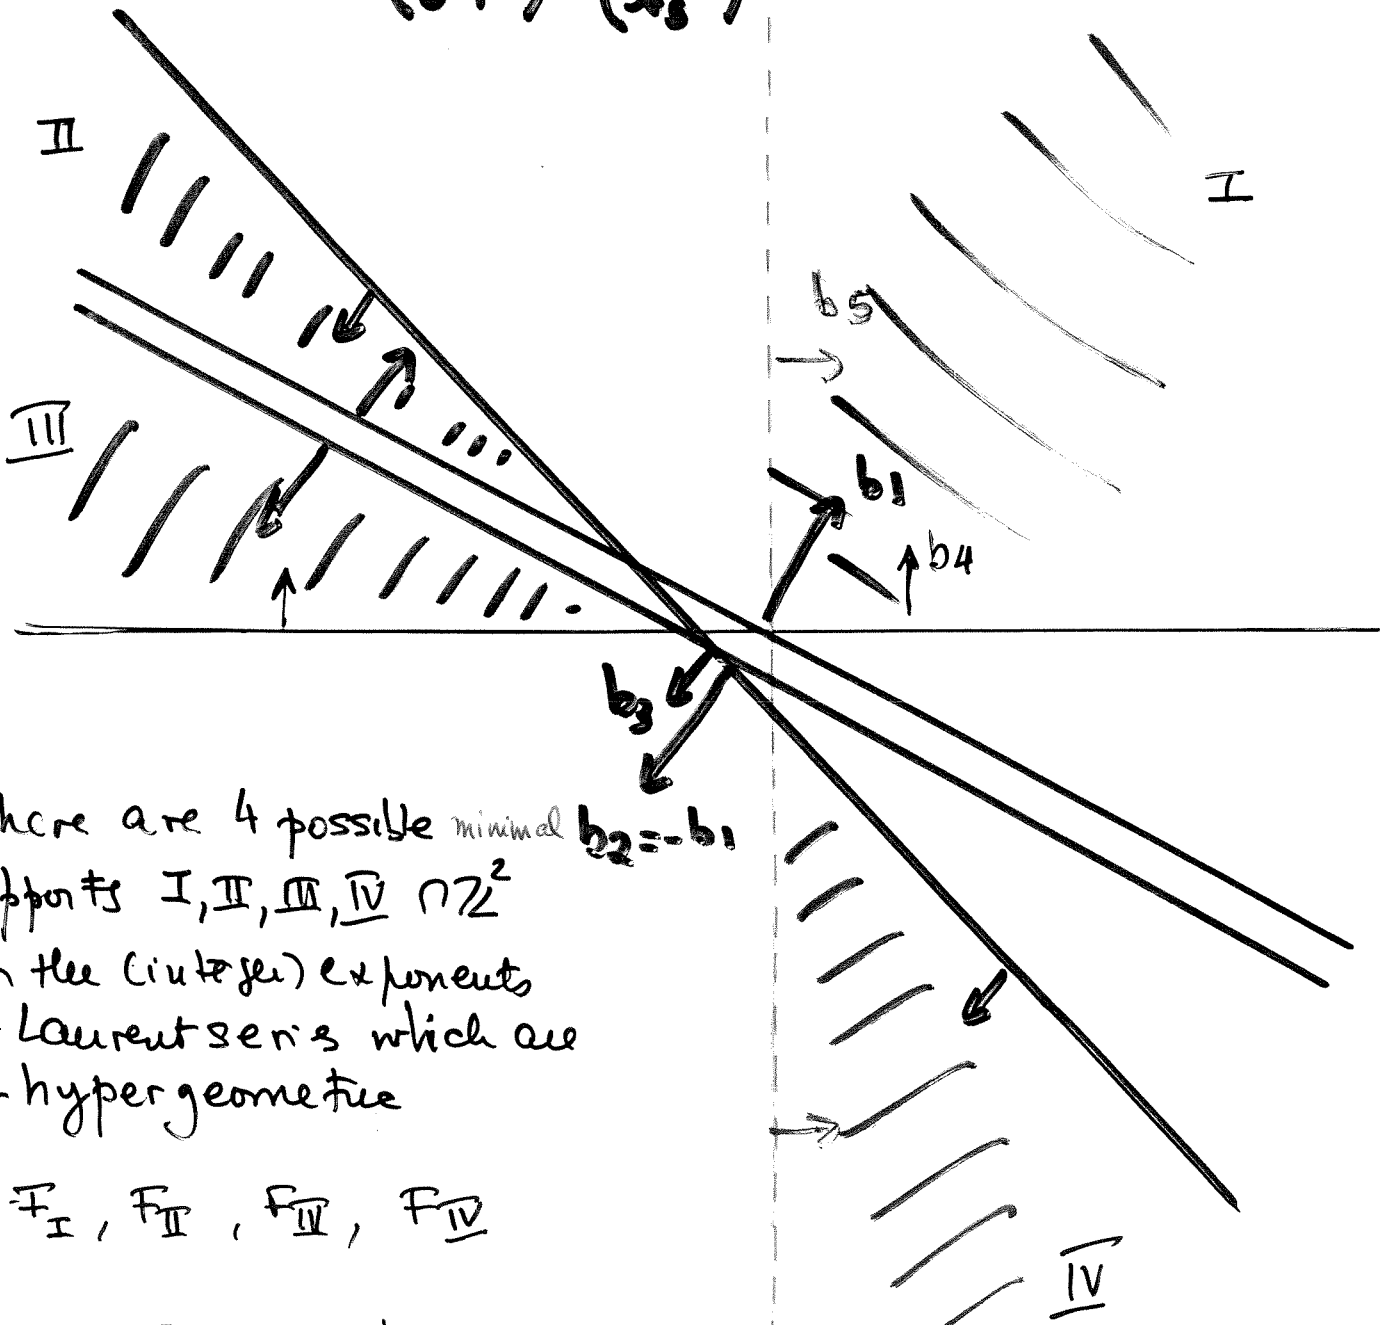 II
I
b5
III
b1
b4
b3
here are 4 possible minimal b2=-b1
pports I, II, III, IV ∩ Z²
the (integer) exponents
Laurent series which are
- hypergeometric
F_I , F_II , F_III , F_IV
IV